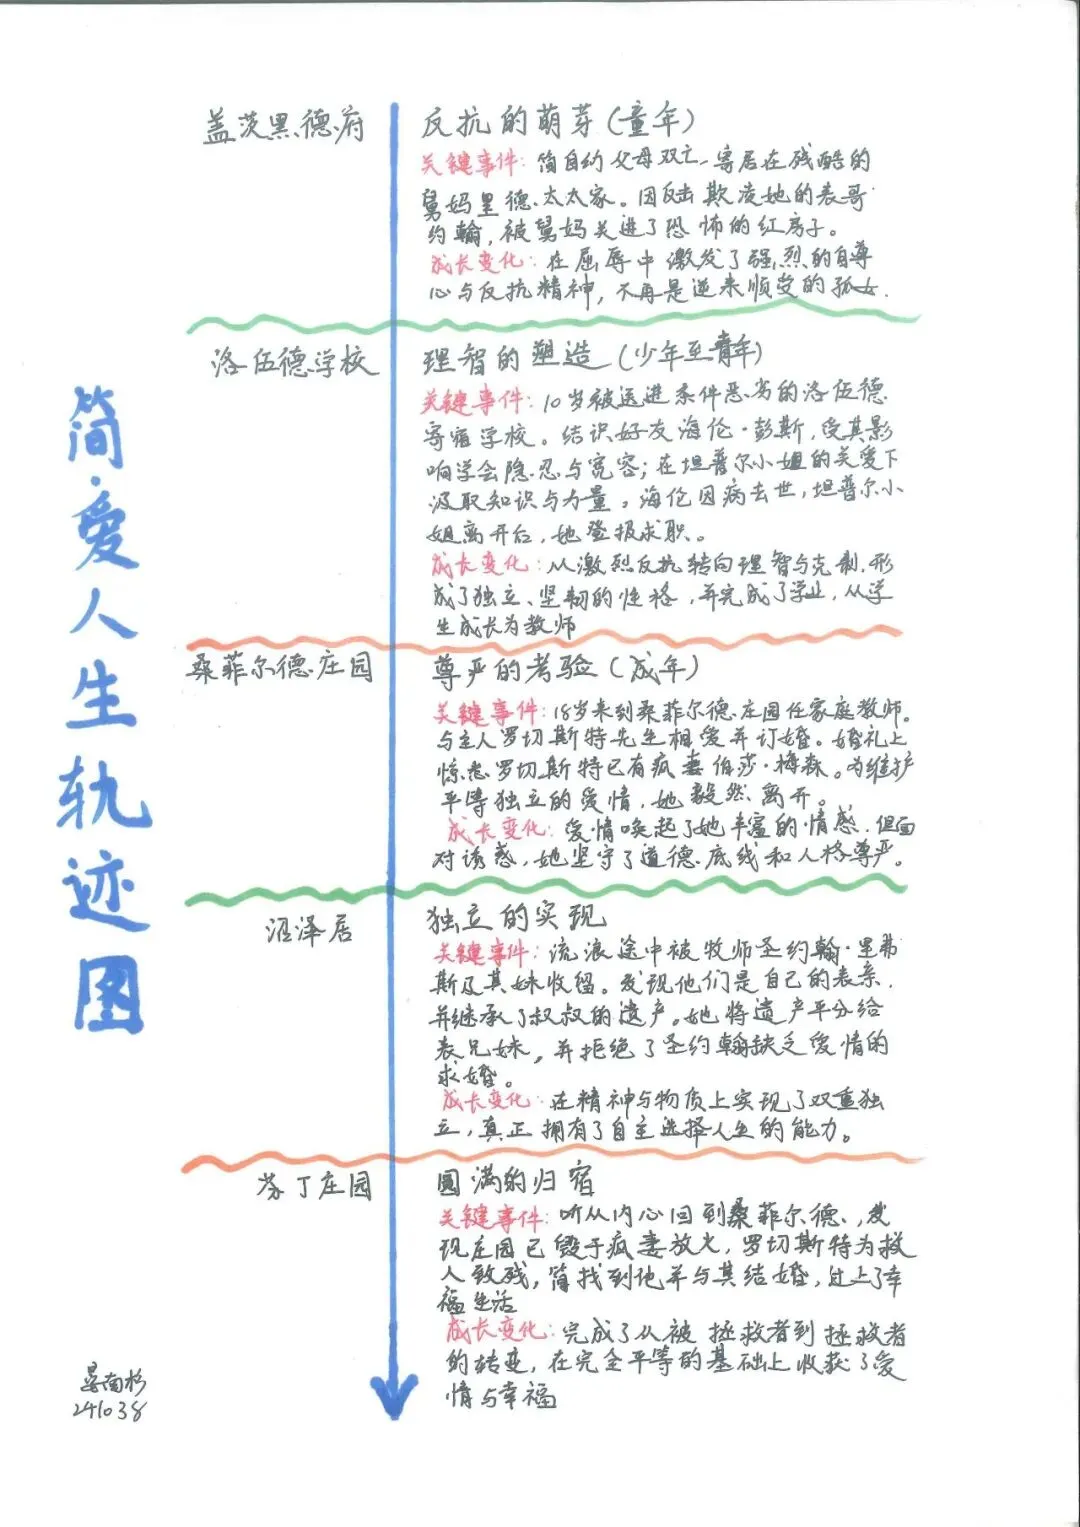 简·爱人生轨迹图
盖茨黑德府
反抗的萌芽(童年)
关键事件:简自幼父母双亡、寄居在残酷的
舅妈里德太太家。因反击欺凌她的表哥
约翰,被舅妈关进了恐怖的红房子。
成长变化:在屈辱中激发了强烈的自尊
心与反抗精神,不再是逆来顺受的孤女.
洛伍德学校
理智的塑造(少年至青年)
关键事件:10岁被送进条件恶劣的洛伍德
寄宿学校。结识好友海伦·彭斯,受其影
响学会隐忍与宽容;在坦普尔小姐的关爱下
汲取知识与力量。海伦因病去世,坦普尔小
姐离开后,她登报求职。
成长变化:从激烈反抗转向理智与克制.形
成了独立、坚韧的性格,并完成了学业,从学
生成长为教师
桑菲尔德庄园
尊严的考验(成年)
关键事件:18岁来到桑菲尔德庄园任家庭教师.
与主人罗切斯特先生相爱并订婚。婚礼上
惊悉罗切斯特已有疯妻伯莎·梅森。为维护
平等独立的爱情,她毅然离开。
成长变化:爱情唤起了她丰富的情感.但面
对诱惑,她坚守了道德底线和人格尊严。
沼泽居
独立的实现
关键事件:流浪途中被牧师圣约翰·里弗
斯及其妹收留。发现他们是自己的表亲.
并继承了叔叔的遗产。她将遗产平分给
表兄妹,并拒绝了圣约翰缺乏爱情的
求婚。
成长变化:在精神与物质上实现了双重独
立,真正拥有了自主选择人生的能力。
芬丁庄园
圆满的归宿
关键事件:听从内心回到桑菲尔德.,发
现庄园已毁于疯妻放火,罗切斯特为救
人致残,简找到他并与其结婚,过上了幸
福生活
成长变化:完成了从被拯救者到拯救者
的转变,在完全平等的基础上收获了爱
情与幸福
241038